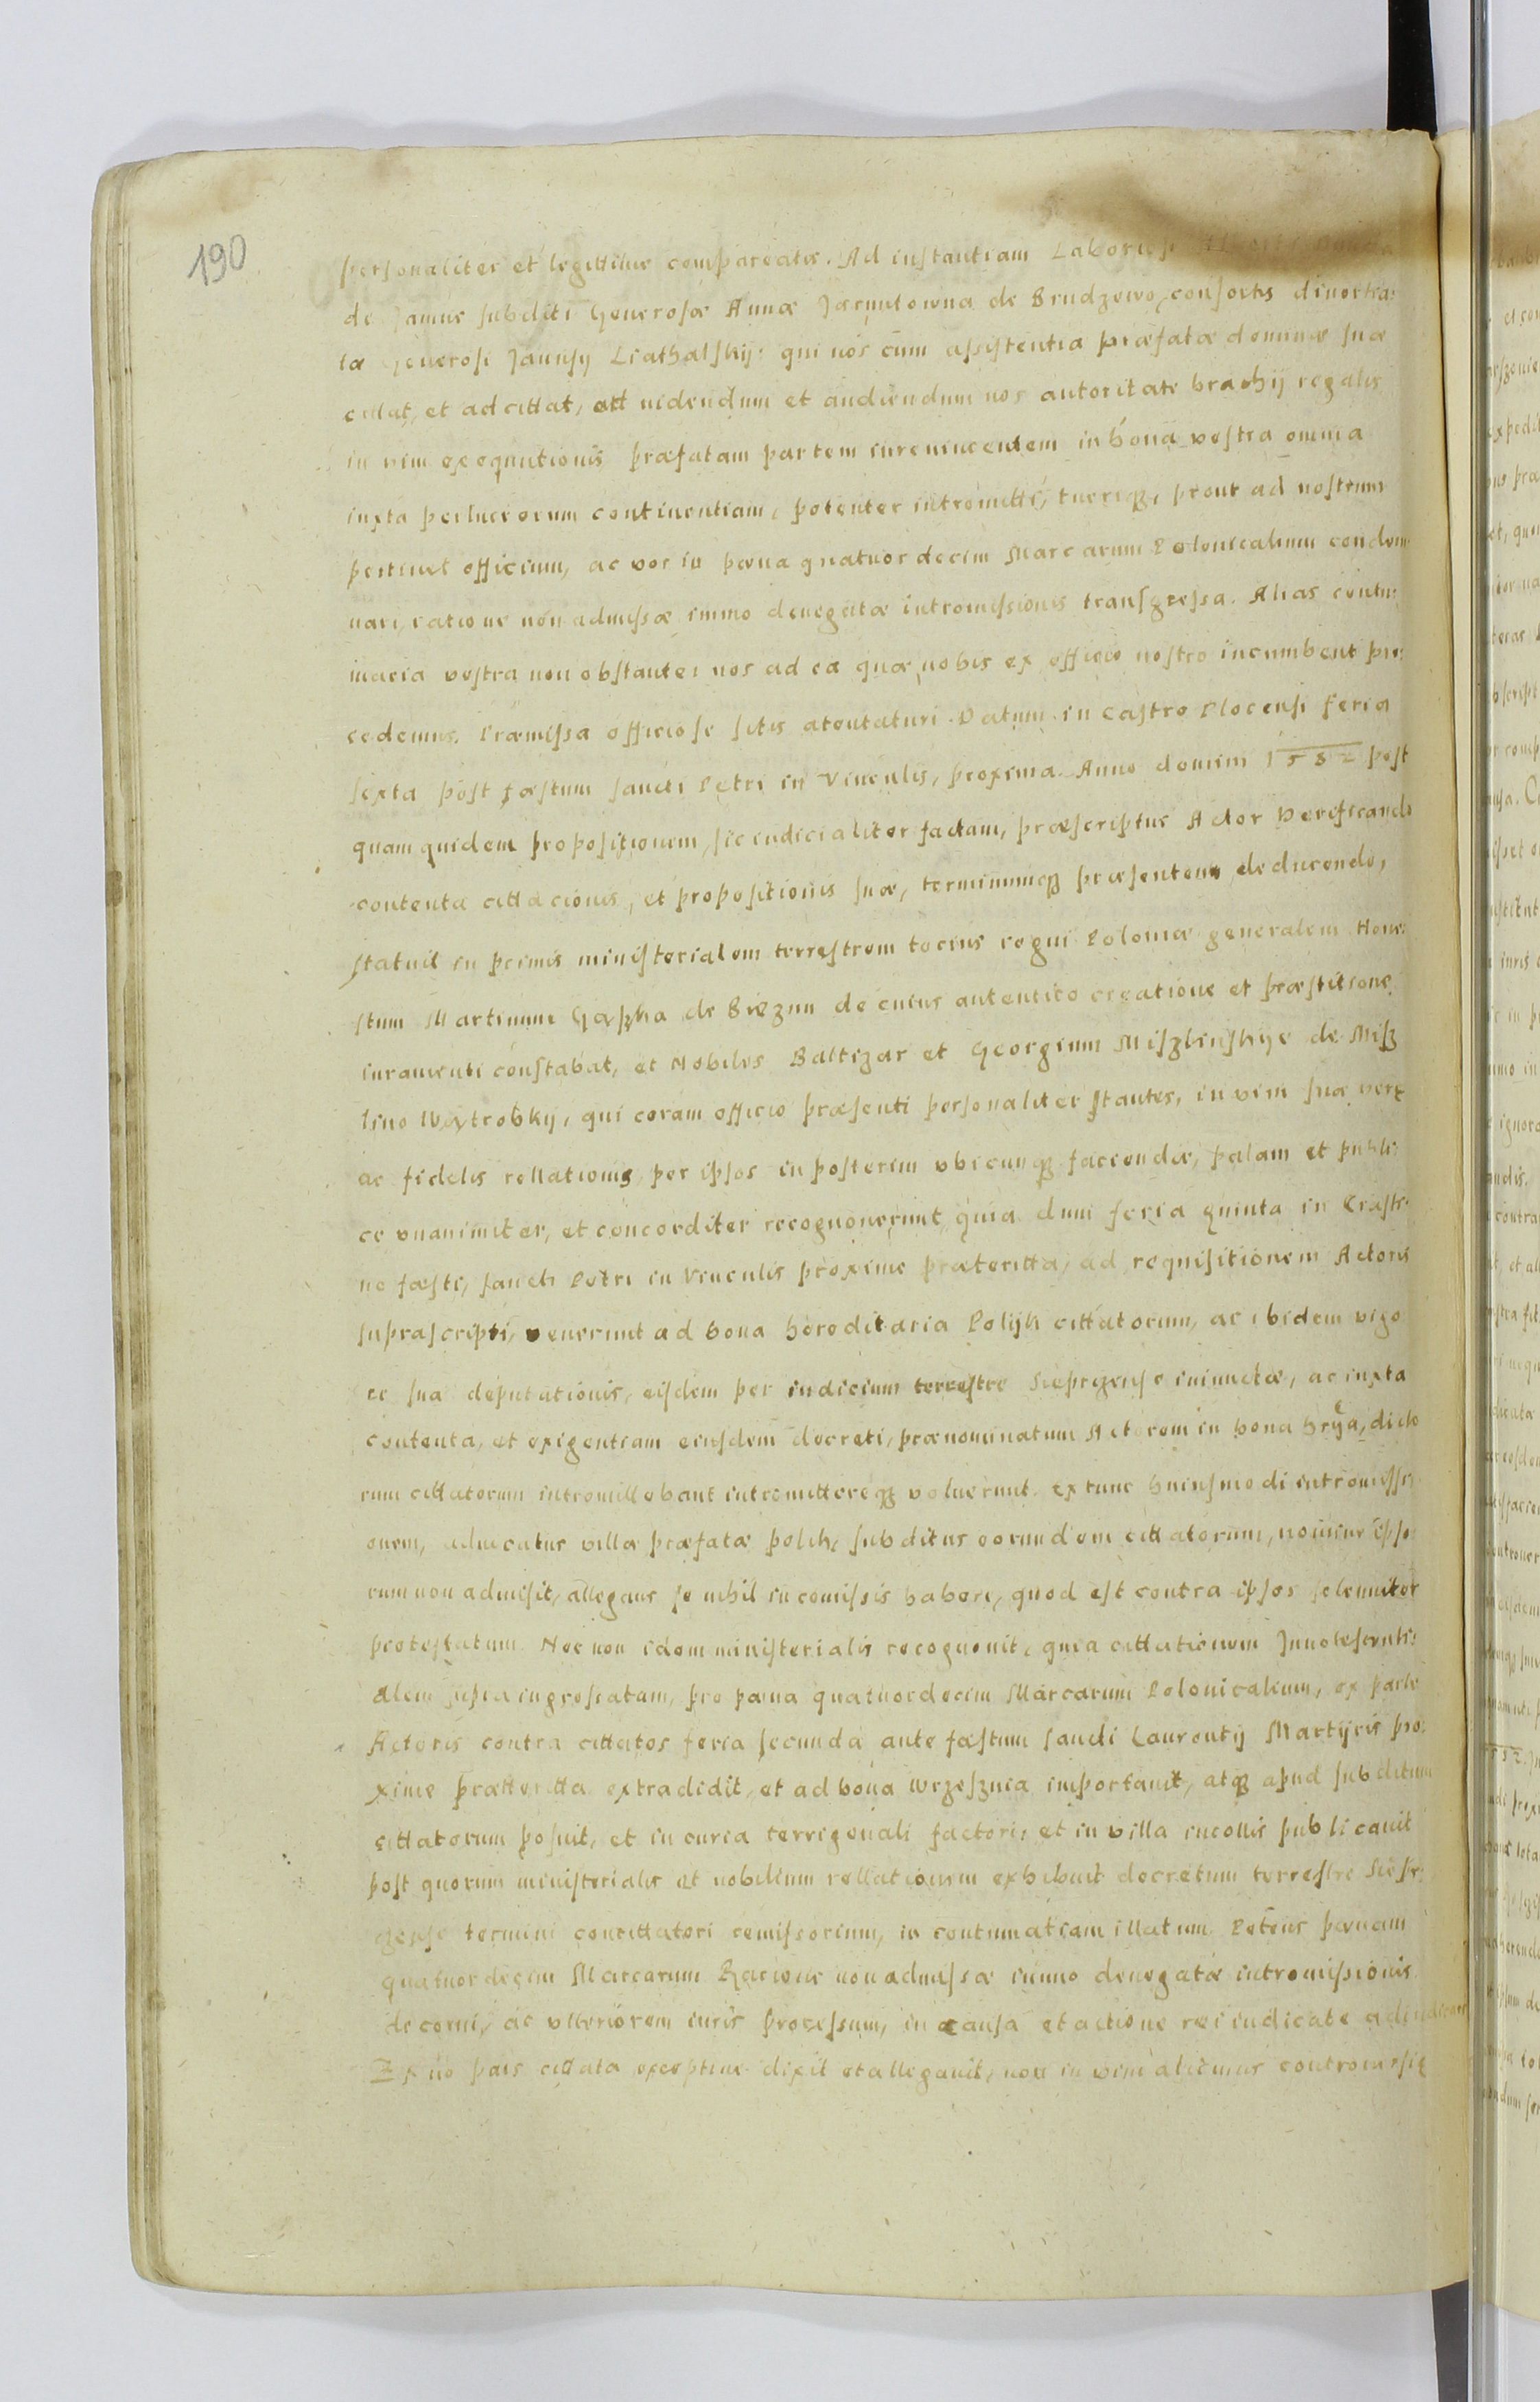 190
personaliter et legittime compareatis. Ad instantiam Laboriosi
de Janne subditi Generosæ Annæ Jarnutowna de Brudzewo, consortis diuortia:
tæ Generosi Jannsy Liathalskij: qui nos cum assistentia præfatæ dominæ suæ
cittat, et ad cittat, ad uidendum et audiendum nos autoritate brachij regalis
in vim exeqnutionis præfatam partem iureuincentem in bona vestra omnia
iuxta perlucrorum continentiam, potenter intromitti, tueriqz, prout ad nostrum
pertinet officium, ac vos in pæna quatuor decim Marcarum Polonicalium condem
nari, ratione non admissæ immo denegatæ intromissionis transgressa. Alias contu:
macia vestra non obstante: nos ad ea quæ nobis ex officio nostro incumbent pro:
cedemus. Præmissa officiose sitis atentaturi. Datum in Castro Plocensi feria
sexta post fæstum sancti Petri in Vinculis, proxima. Anno domini 1582 post
quam quidem propositionem, sic iudicialiter factam, præscriptus Actor Verificando
contenta cittacionis, et propositionis suæ, terminumqz præsentem deducendo,
statuit in primis ministerialem terrestrem tocius regni Poloniæ generalem Hone:
stum Martinum Gaszka de Biezun de cuius autentico creatione et præstitione
iuramenti constabat, et Nobiles Baltizar et Georgium Miszlinskye de Misz
lino Wątrobky, qui coram officio præsenti personaliter stantes, in vim suæ veræ
ac fidelis rellationis per ipsos in posterim vbicunqz faciendæ, palam et publi:
ce vnanimiter, et concorditer recognouerunt quia dum feria quinta in Crasti:
no fæsti, sancti Petri in Vinculis proxime præteritta, ad requisitionem Actoris
suprascripti, venerunt ad bona hereditaria Polijk cittatorum, ac ibidem vigo
re sua deputationis, eisdem per iudicium terrestre Sieprzense iniunctæ, ac iuxta
contenta, et exigentiam eiusdem decreti, prænominatum Actorem in bona hrýa, dicto
rum cittatorum intromittebant intromittereqz voluerunt. extunc huiusmodi intromissi
onem, aduocatus villæ præfatæ polik, subditus eorundem cittatorum, nomine ipso
rum non admisit, allegans se nihil in comissis habere, quod est contra ipsos solemniter
protestatum. Nec non idem ministerialis recognouit, quia cittationem Innotescenti:
alem supra ingrosatam, pro pæna quatuordecim Marcarum Polonicalium, ex parte
Actoris contra cittatos feria secunda ante fæstum sancti Laurentij Martijris pro:
xime prætteritta extradidit, et ad bona Wrzesznia importauit, atqz apud subditum
cittatorum posuit, et in curia terrigenali factori, et in villa incollis publicauit
post quorum ministerialis et nobilium rellationem exhibuit decretum terrestre
termini concittatori remissorium, in contumatiam illatum. Petens pænam
quatuordecim Marcarum Racione non admissæ immo denegatæ intromissionis
decerni, ac vlteriorem iuris processum, in causa et actione rei iudicate
Ex quo pars cittata exceptiue dixit et allegauit, non in vim alicuius controuersię